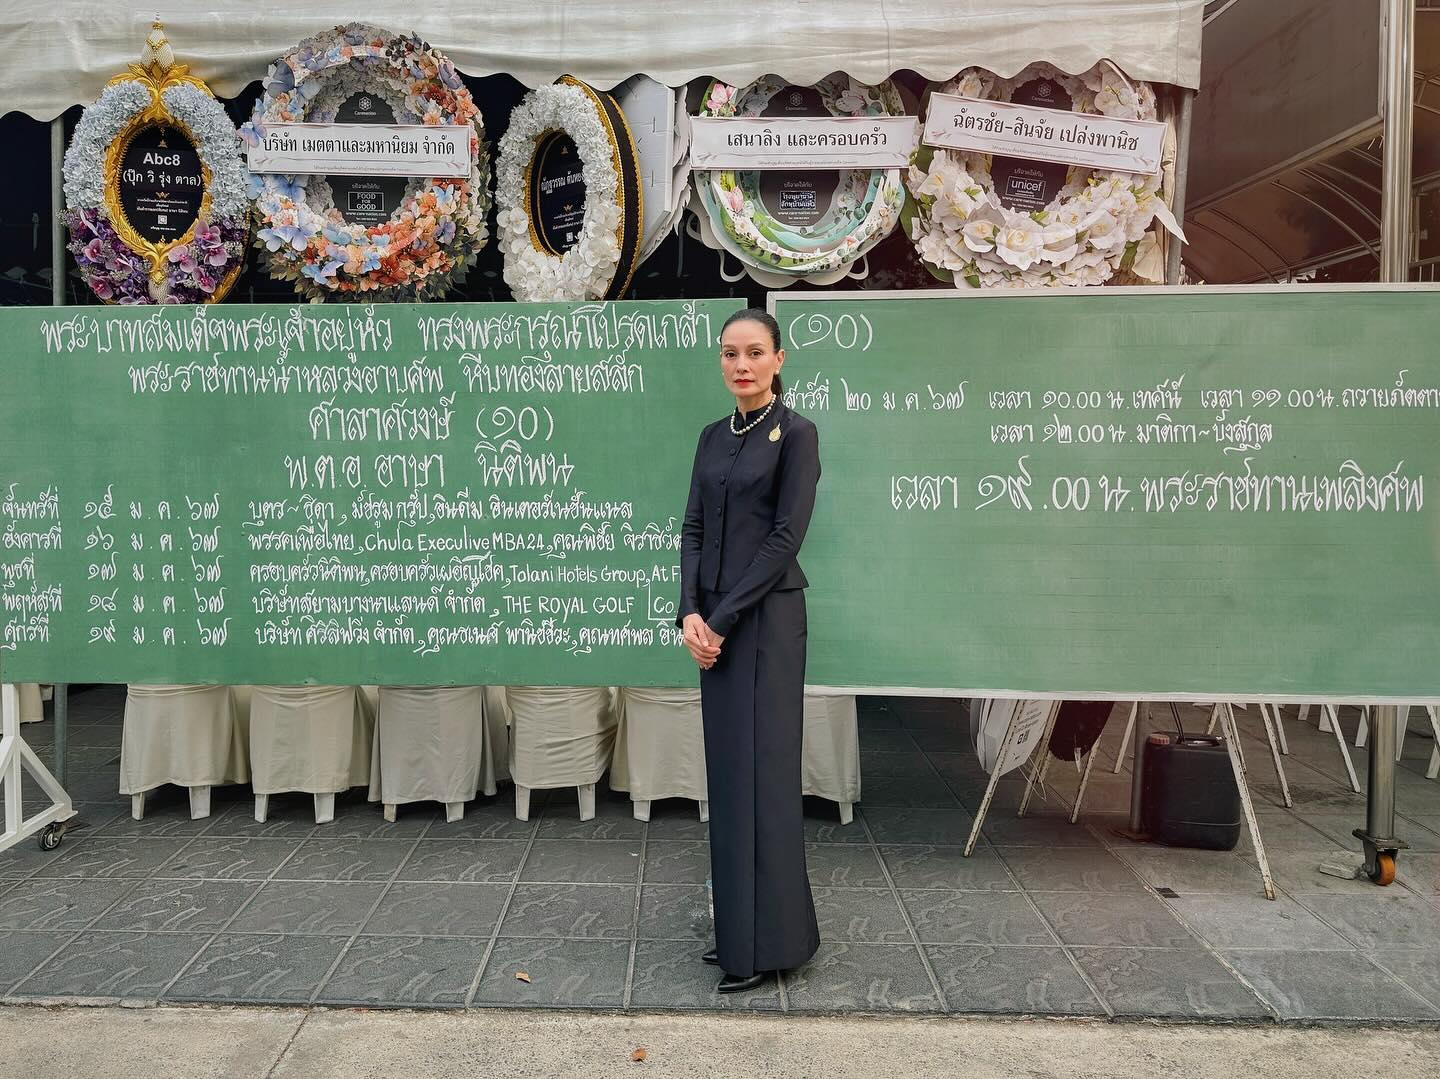 Abc8
(ปุ๊ก วิ รุ่ง ตาล)
บริษัท เมตตาและมหานิยม จำกัด
บริจาคให้กับ
FOOD
FOR
GOOD
Carenation
เสนาลิง และครอบครัว
บริจาคให้กับ
www.care-nation.com
Carenation
ฉัตรชัย-สินจัย เปล่งพานิช
บริจาคให้กับ
unicef
พระบาทสมเด็จพระเจ้าอยู่หัว ทรงพระกรุณาโปรดเกล้าฯ
พระราชทานน้ำหลวงอาบศพ หีบทองลายสลัก
ศาลาศวงษ์ (๑๐)
พ.ต.อ. อาษา นิติพน
จันทร์ที่ ๑๕ ม.ค.๖๗ บุตร~ธิดา, มัชรูมกรุ๊ป, อินดีม อินเตอร์เนชั่นแนล
อังคารที่ ๑๖ ม.ค.๖๗ พรรคเพื่อไทย, Chula Execulive MBA24, คุณพิชัย จิราธิวั
พุธที่ ๑๗ ม.ค.๖๗ ครอบครัวนิติพน, ครอบครัวเผอิญโชค, Tolani Hotels Group, At F
พฤหัสที่ ๑๘ ม.ค.๖๗ บริษัทสยามบางนาแลนด์ จำกัด, THE ROYAL GOLF Co.
ศุกร์ที่ ๑๙ ม.ค.๖๗ บริษัท ศิริลิฟวิ่ง จำกัด, คุณธเนศ พานิชชีวะ, คุณทศพล อิน
(๑๐)
สาร์ที่ ๒๐ ม.ค.๖๗ เวลา ๑๐.00 น. เทศน์ เวลา ๑๑.00 น. ถวายภัตตา
เวลา ๑๒.00 น. มาติกา~บังสุกุล
เวลา ๑๙.00 น. พระราชทานเพลิงศพ